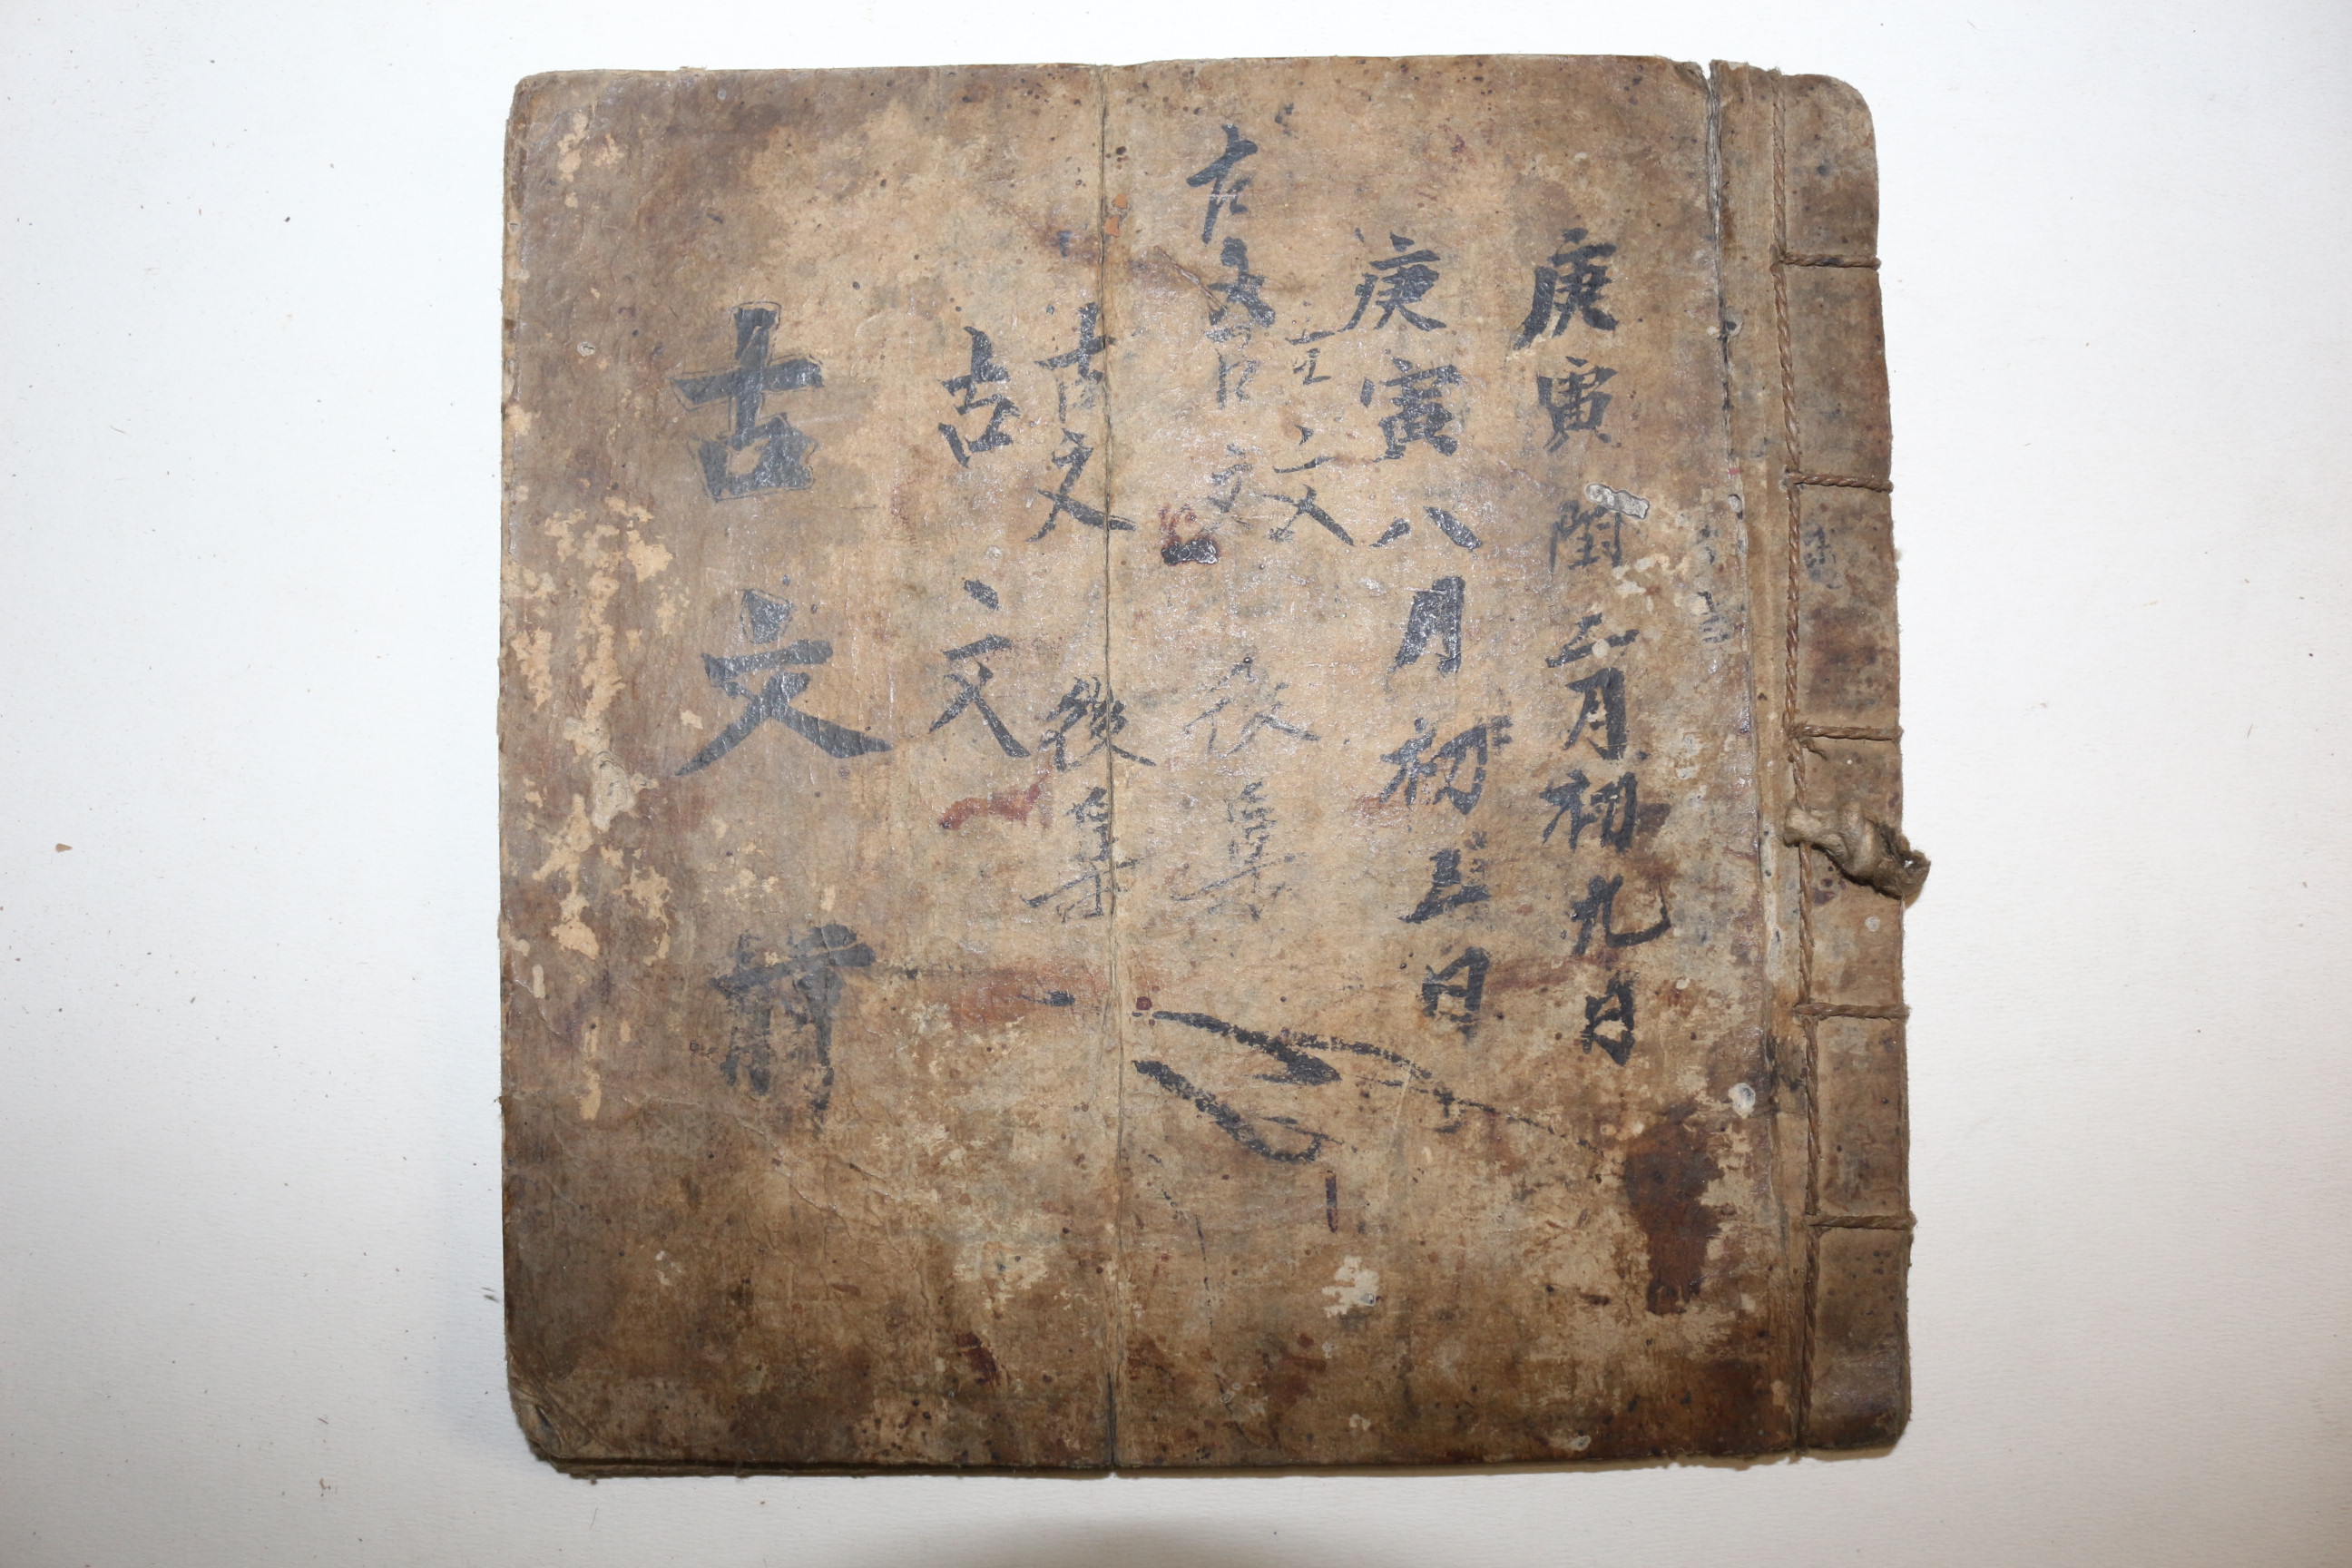 庚寅閏二月初九日
庚寅八月初三日
古文
古文後集
古文後集
古文
古文前